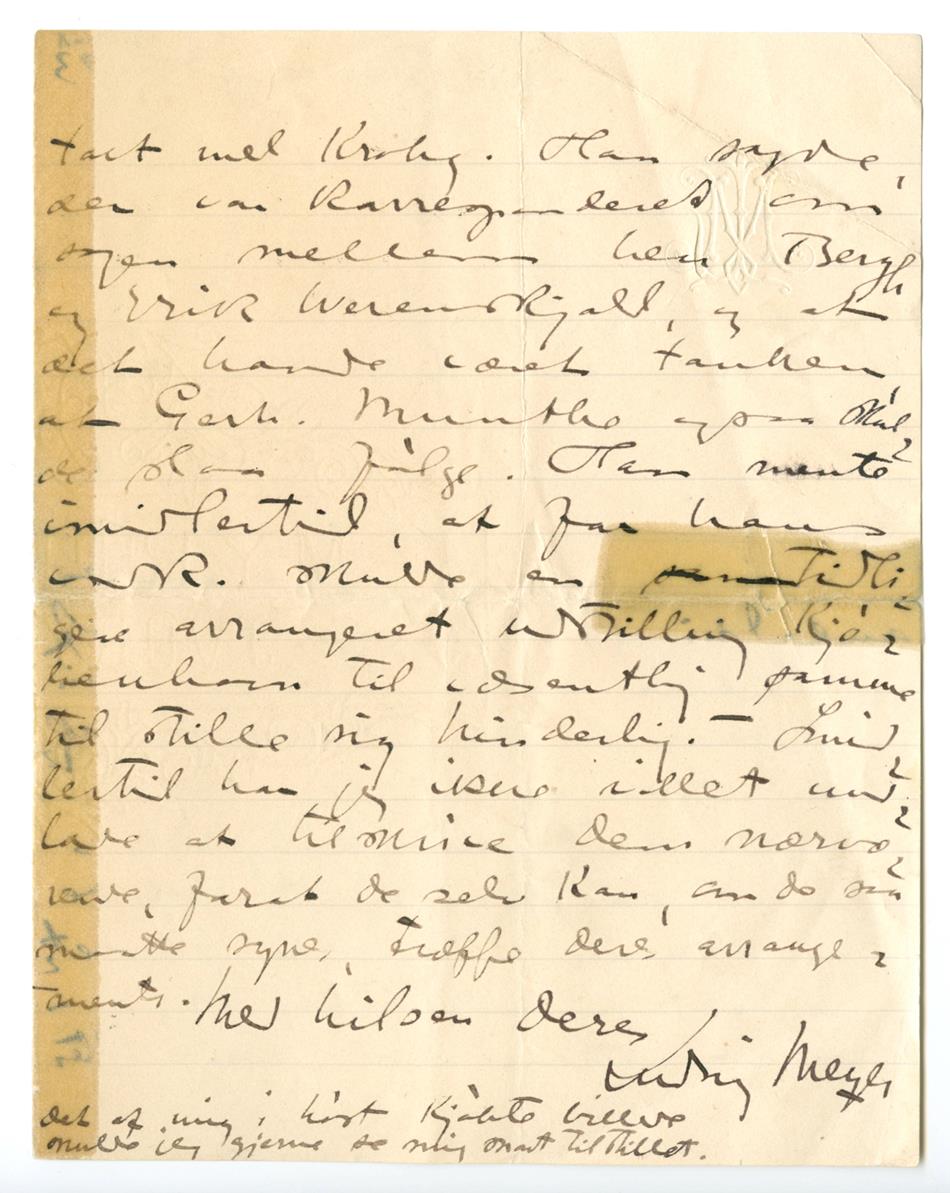 talt med Krohg. Han sagde,
der var Korresponderet om
sagen mellem herr Bergh
og Erik Werenskjold, og at
det havde været tanken,
at Gerh. Munthe ogsaa skul-
de slaa følge. Han mente
imidlertid, at for hans
vedk. skulde en tidli-
gere arrangeret udstilling Kjø-
benhavn til væsentlig samme
tid stille sig hinderlig. – Imid-
lertid har jeg ikke villet und-
lade at tilskrive Dem nærvæ-
rende, forat De selv Kan, om De saa
maatte synes, træffe Deres arrange-
ments. Med hilsen Deres
Ludvig Meyer
Det af mig i høst Kjøbte billede
skulde jeg gjerne se mig snart tilstillet.